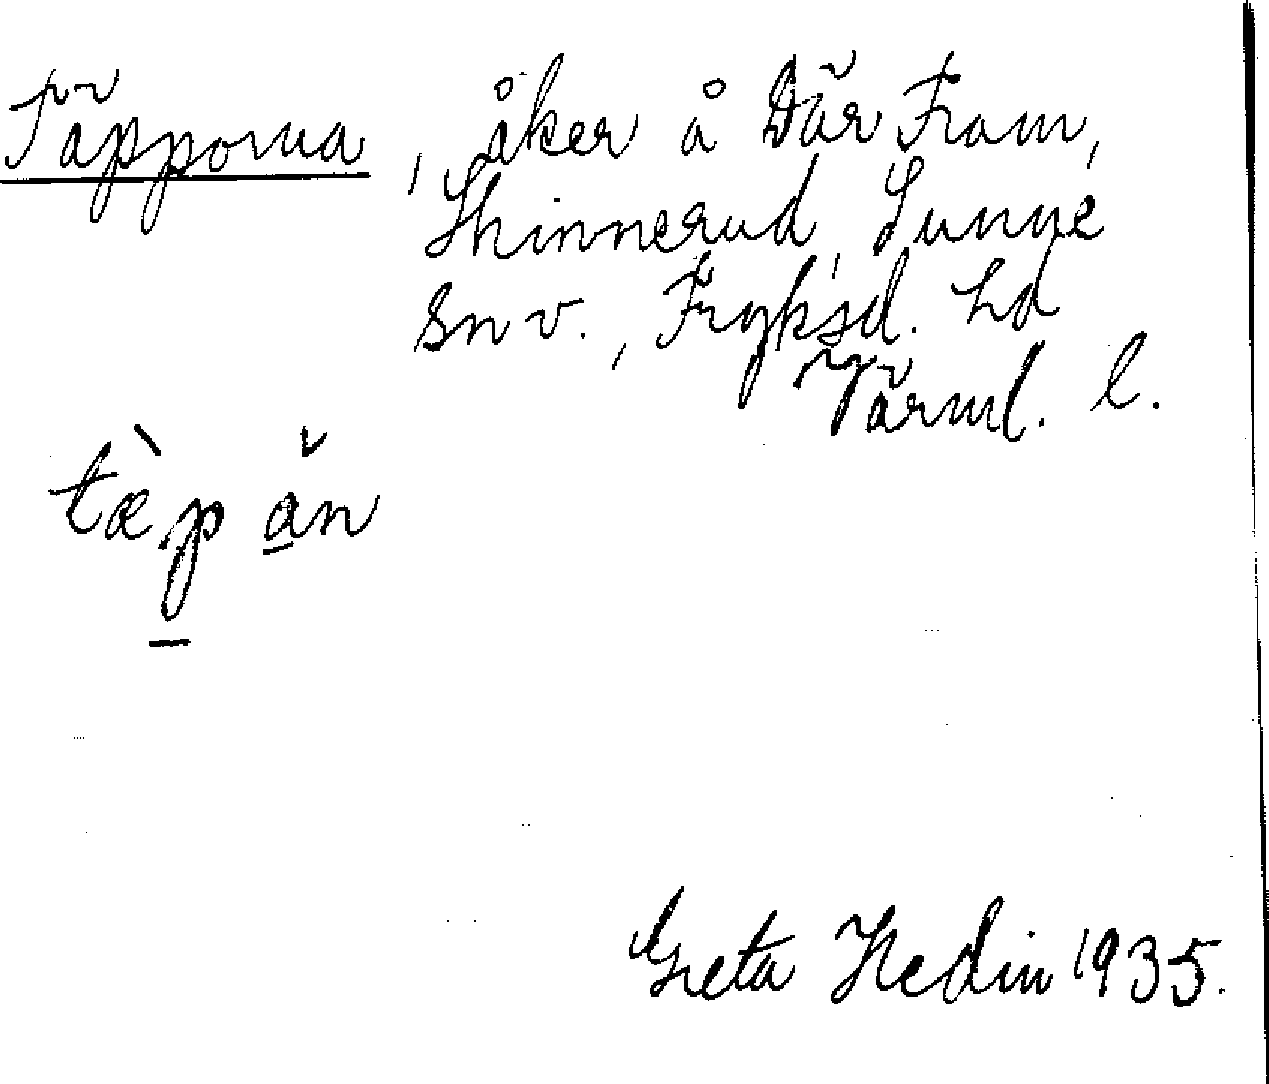 Täpporna, åker å Där Fram,
Skinnerud, Sunne
sn v., Fryksd. hd
Värml. l.
tæ̀p ǎn
Greta Hedin 1935.